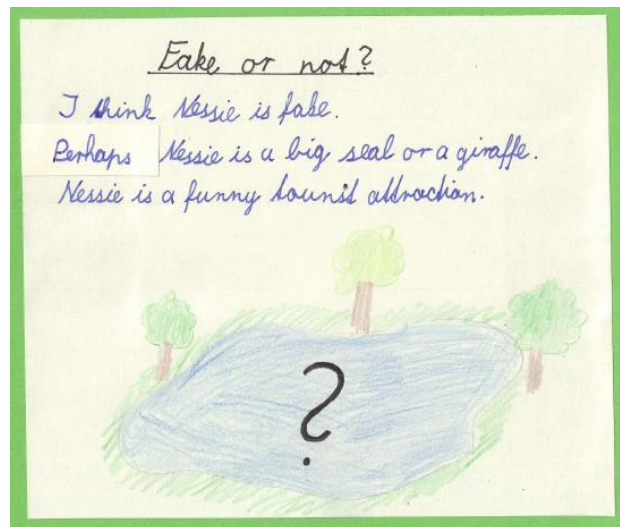 Fake or not?
I think Nessie is fake.
Perhaps Nessie is a big seal or a giraffe.
Nessie is a funny tourist attraction.
?